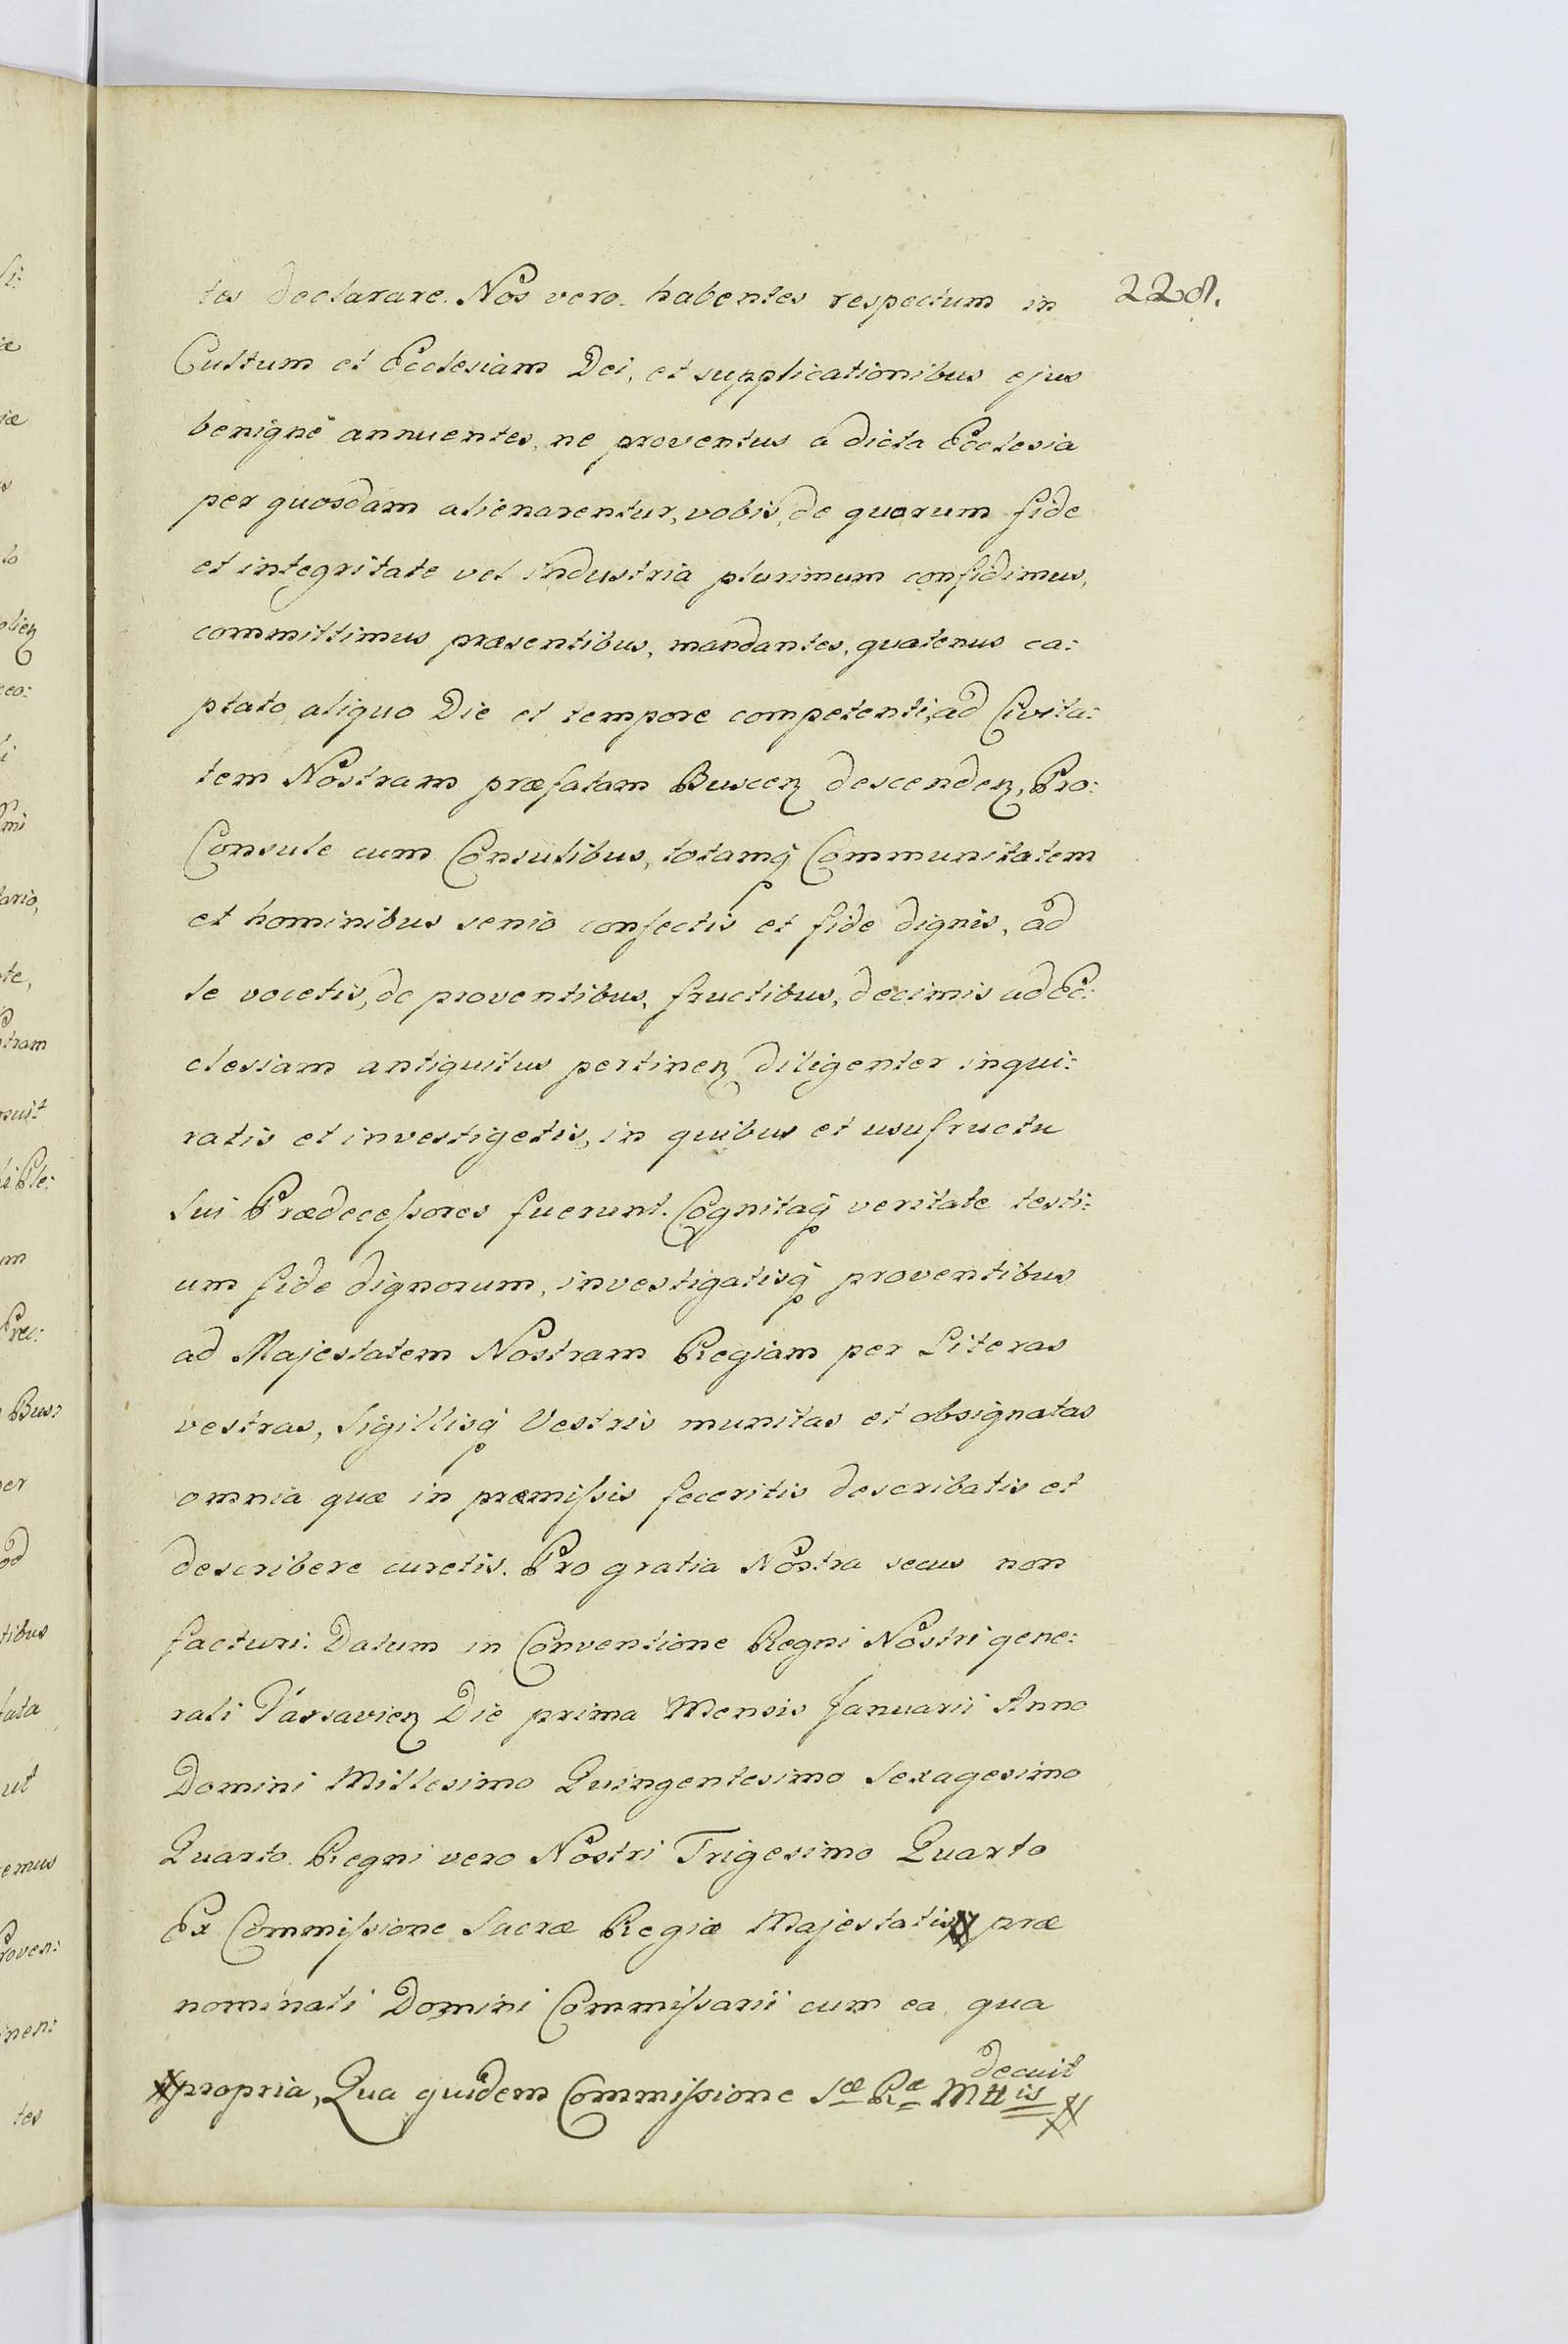 228.
tes declarare. Nos vero. habentes respectum in
Cultum et Ecclesiam Dei, et supplicationibus ejus
benignè annuentes, ne proventus a dicta Ecclesia
per quosdam alienarentur, vobis, de quorum fide
et integritate vel industria plurimum confidimus,
committimus præsentibus, mandantes, quatenus ca:
ptato aliquo Die et tempore competenti, ad Civita:
tem Nostram præfatam Buscen descenden, Pro:
Consule cum Consulibus, totamq Communitatem
et hominibus senio confectis et fide dignis, ad
se vocetis, de proventibus, fructibus, decimis ad Ec:
clesiam antiquitus pertinen diligenter inqui:
ratis et investigetis, in quibus et usufructu
sui Prædecessores fuerunt. Cognitaq veritate testi:
um fide dignorum, investigatisq proventibus
ad Majestatem Nostram Regiam per Literas
vestras, Sigillisq Vestris munitas et obsignatas
omnia quæ in præmissis feceritis describatis et
describere curetis. Pro gratia Nostra secus non
facturi. Datum in Conventione Regni Nostri gene:
rali Varsavien Die prima Mensis Januarii Anno
Domini Millesimo Quingentesimo Sexagesimo
Quarto. Regni vero Nostri Trigesimo Quarto
Ex Commissione Sacræ Regiæ Majestatis præ
nominati Domini Commissarii cum ea, qua
decuit
propria, Qua quidem Commissione Sæ Ræ Mttis